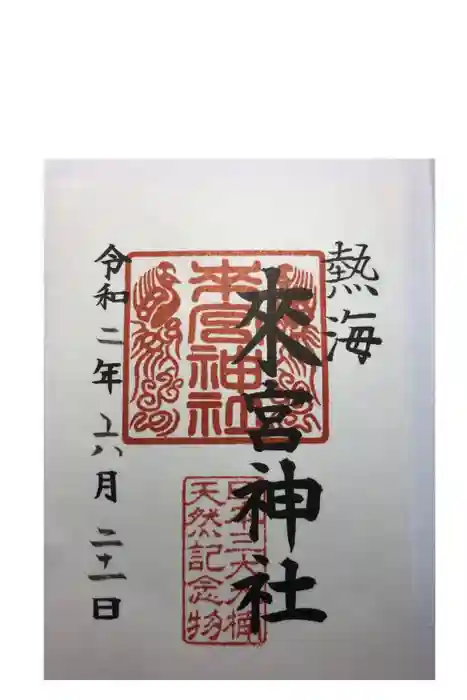 熱海
來宮神社
来宮神社
日本三大大楠
天然記念物
令和二年六月二十一日